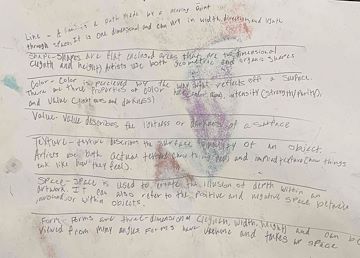 Line - A line is a path made by a moving point
through space. It is one dimensional and can vary in width, direction and length
Shape - Shapes are flat enclosed areas that are two dimensional
(length and height) Artists use both geometric and organic shapes
Color - Color is perceived by the way light reflects off a surface.
There are three properties of color intensity (strength/purity),
and value (lightness and darkness)
Value - value describes the lightness or darkness of a surface
Texture - texture describes the surface quality of an object.
Artists use both actual texture (how things feel) and implied texture (how things
look like how they feel).
Space - Space is used to create the illusion of depth within an
artwork. It can also refer to the positive and negative space between
around or within objects.
Form - Forms are three-dimensional (length, width, height) and can be
viewed from many angles Forms have volume and take up space